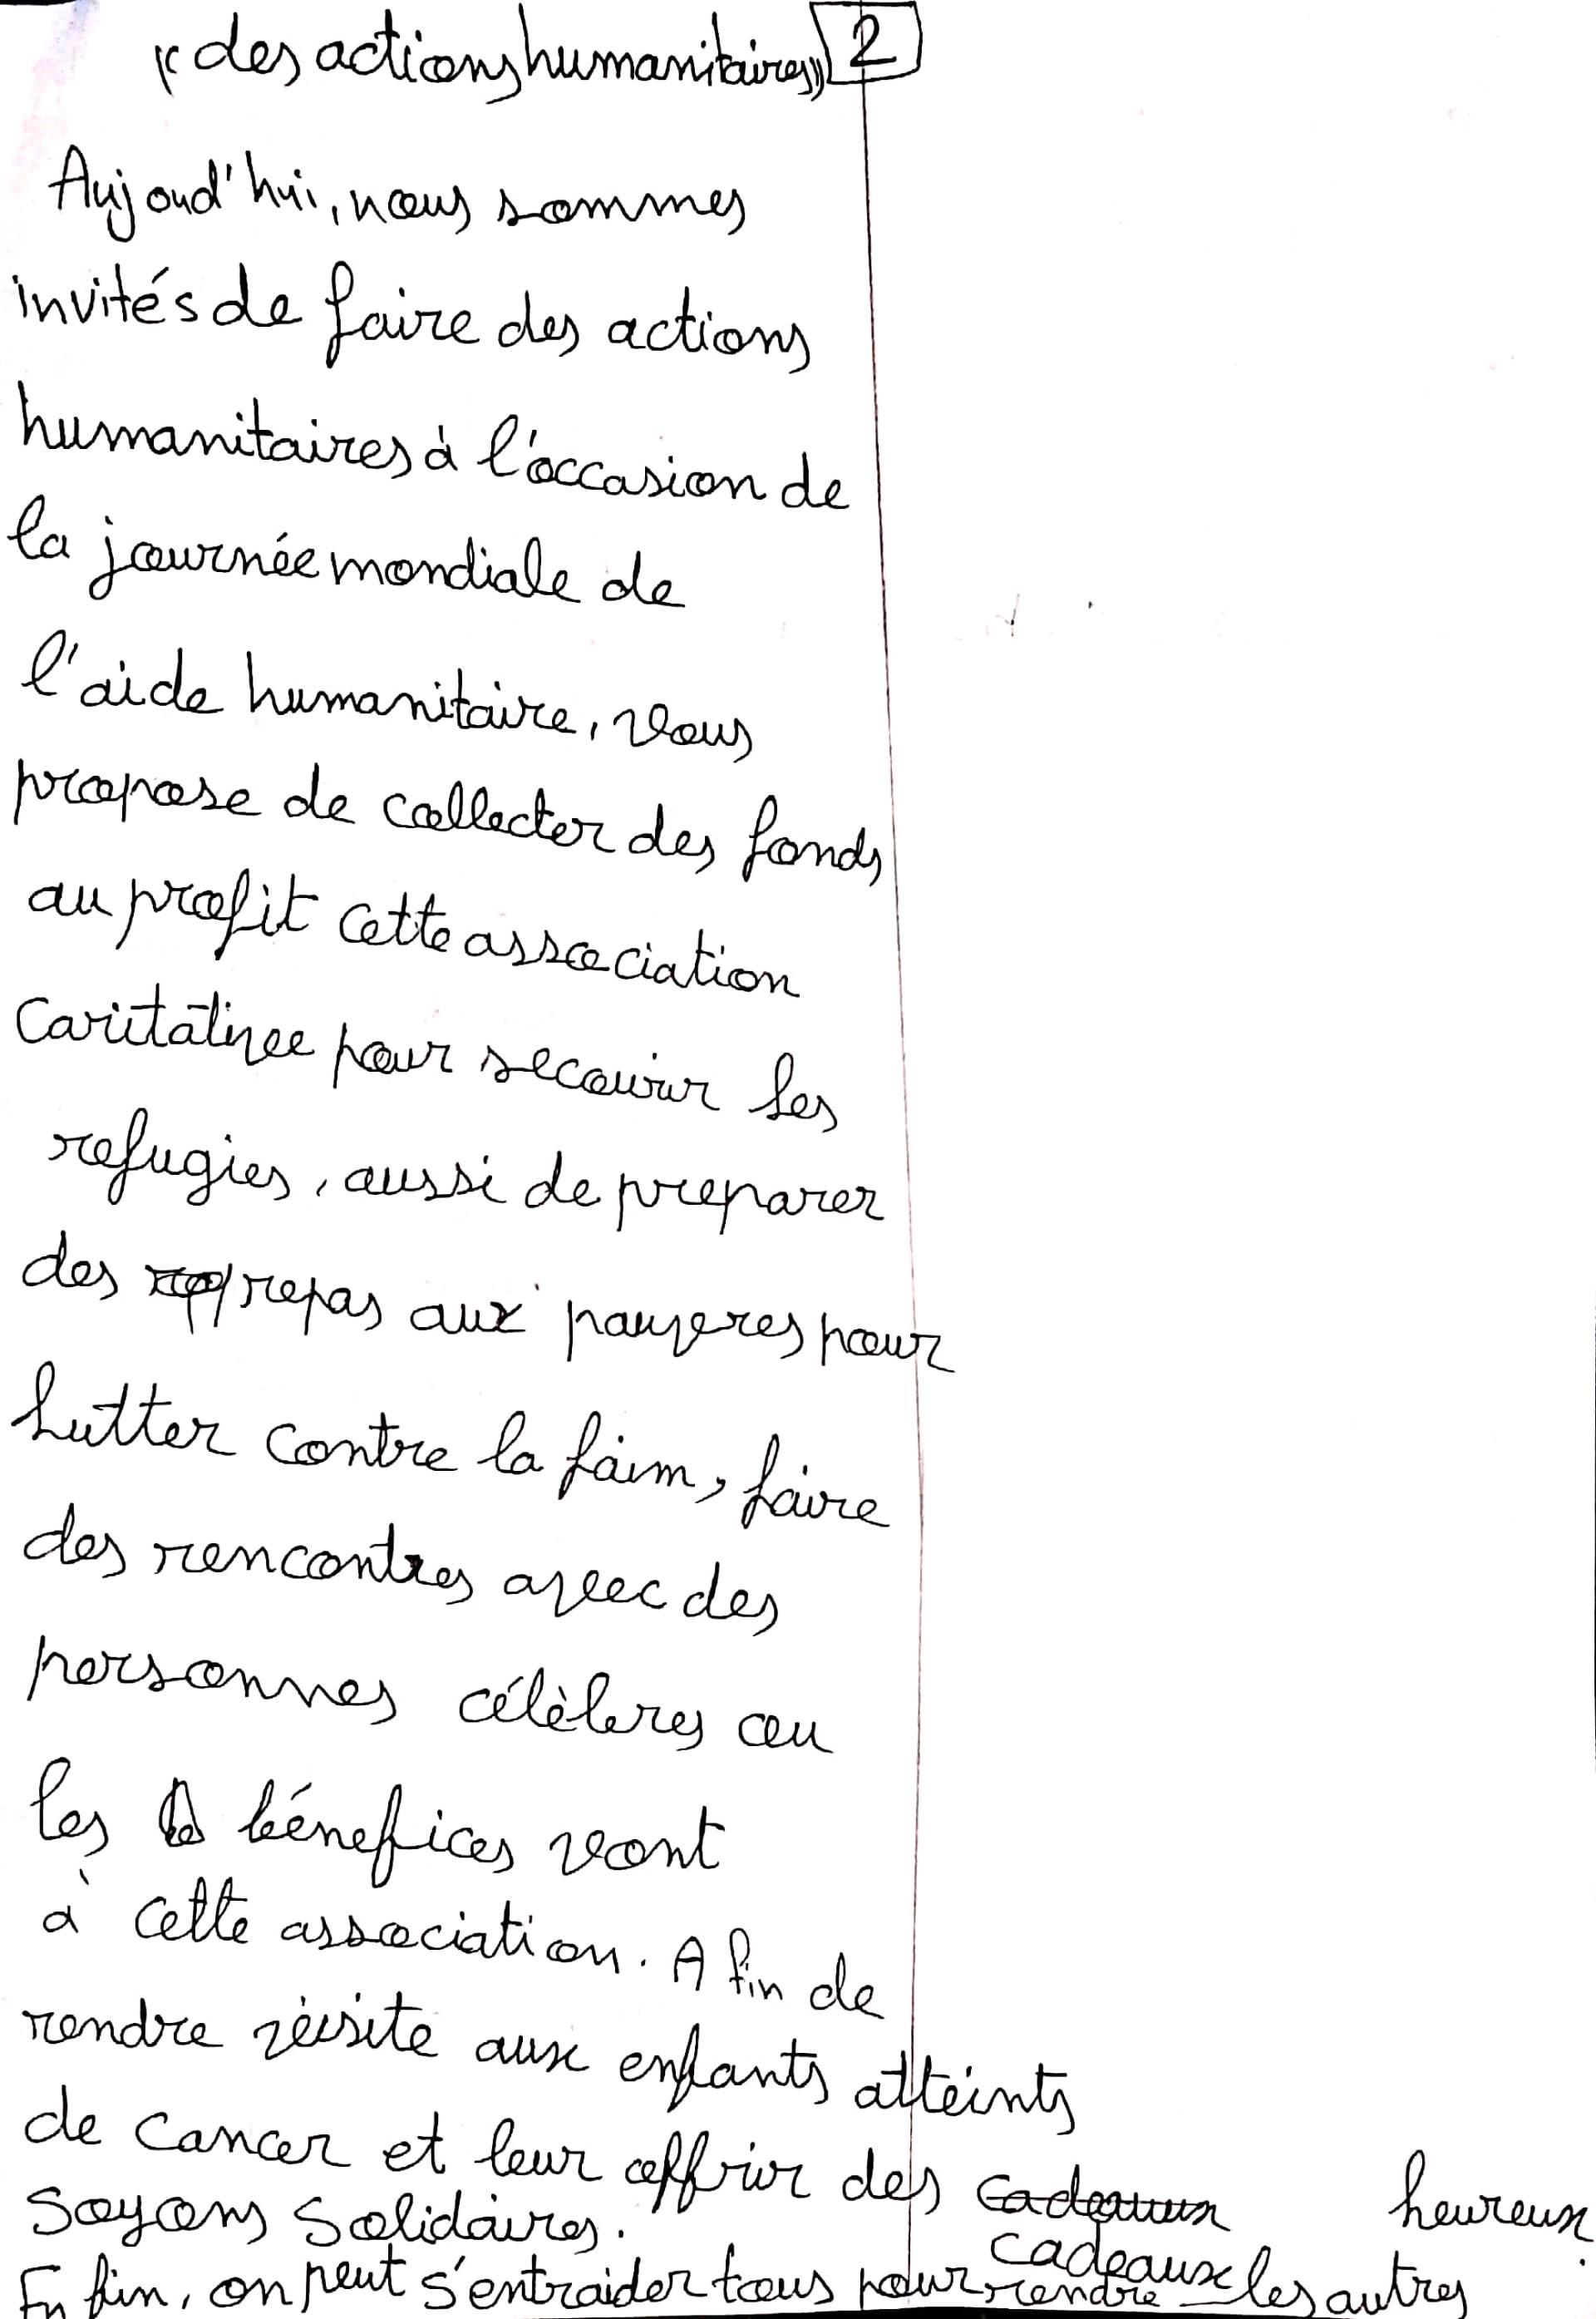 « des actions humanitaires » 2
Aujoud'hui, nous sommes
invités de faire des actions
humanitaires à l'occasion de
la journée mondiale de
l'aide humanitaire, vous
propose de collecter des fonds
au profit cette association
caritative pour secourir les
refugies, aussi de preparer
des repas aux pauveres pour
lutter contre la faim, faire
des rencontres avec des
personnes célèbres ou
les bénefices vont
à cette association. A fin de
rendre visite aux enfants atteints
de cancer et leur offrir des cadeaux
soyons solidaires.
En fin, on peut s'entraider tous pour rendre les autres heureux.